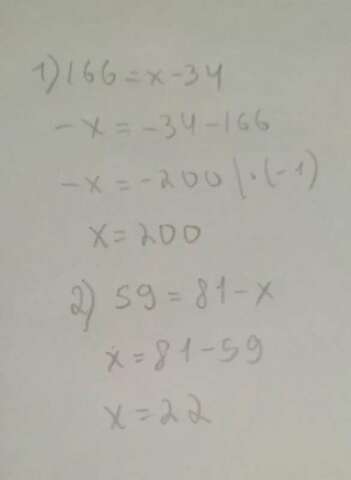 1) 166 = x - 34
- x = - 34 - 166
- x = - 200 | · (-1)
x = 200
2) 59 = 81 - x
x = 81 - 59
x = 22